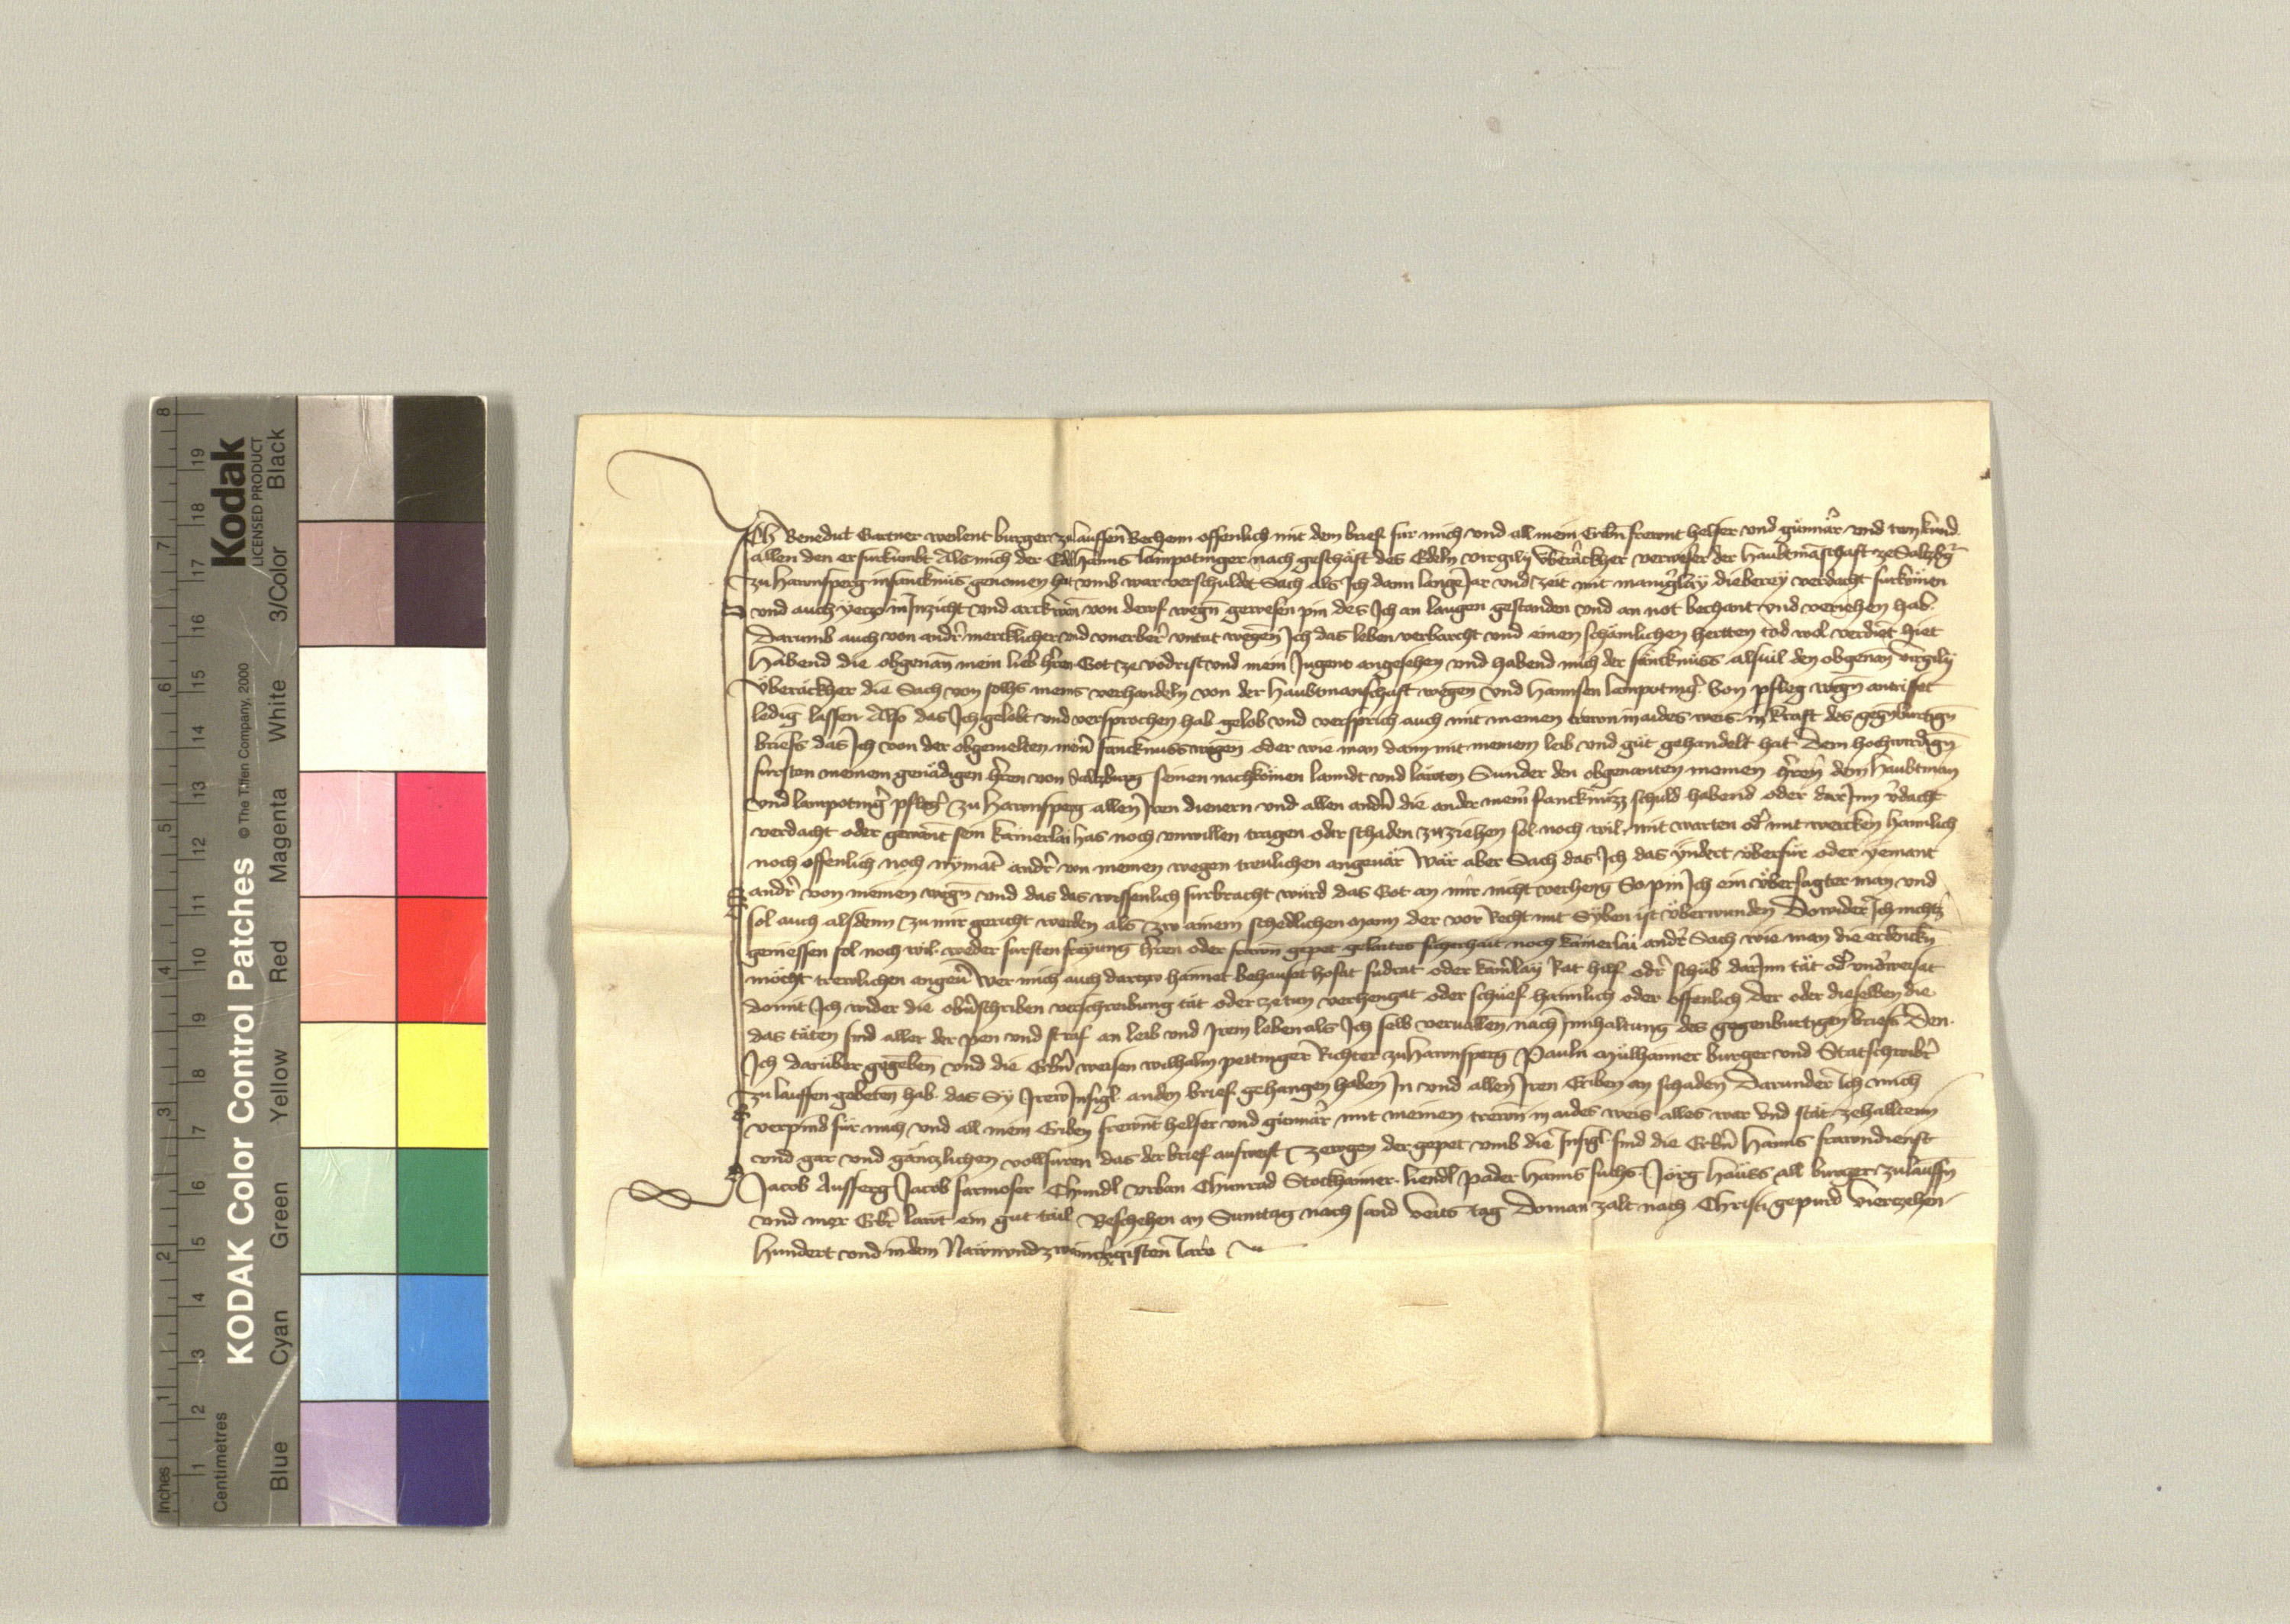 KODAK Color Control Patches © The Tiffen Company, 2000
Kodak
LICENSED PRODUCT
Inches 1 2 3 4 5 6 7 8
Centimetres 1 2 3 4 5 6 7 8 9 10 11 12 13 14 15 16 17 18 19
Blue Cyan Green Yellow Red Magenta White 3/Color Black
Ich Benedict Gartner weilent burger zu lauffen Vergem offenlich mit dem brief fur mich und all mein Erbn frewnt helfer und gunnär und tun kund
allen den er furkumbt Als mich der Edl Hanns lampotinger nach geschäft des Edeln virgily Überäkher verweser der haubtmaschaft ze Salzbg
zu Harnsperg in fancknus genomen hat umb war verschuldt Sach als Ich dann lange Jar und zeit mit manigslay dieberey verdacht furkömen
und auch yeczo in Inzicht und arckwan von dewf wegn gewesen pin des Ich an laugen gestanden und an not bechant und veriehen hab
Darumb auch von andr mercklicher und unerber untat wegen Ich das leben verborcht und einen schämlichen hertten tod wol verdient hiet
Habend die obgenan mein lieb hren Got ze vodrist und mein Jugent angesehen und habend mich der fäncknüss alsuil den obgenan virgily
Überäkher die Sach von solhs meins verhandeln von der haubtmanschaft wegen und Hannsen lampoting von pfleg wegn antriffet
ledig lassen Also das Ich gelobt und versprochen hab gelob und versprich auch mit meinen trewn in aides weis in kraft des gegnburtign
briefs das Ich von der obgemelten meiner fancknuss wegen oder wie man dann mit meinem leib und gut gehandelt hat Dem hochwirdign
fursten meinem genädigen hren von Salzburg seinen nachkömen lanndt und läwten Sunder den obgenanten meinen hren dem haubtman
und lampoting pfleg zu Harnsperg allen Iren dienern und allen andn die an der meinr fancknüzz schuld habend oder darInn
verdacht oder gewant sein kainerlai has noch unwillen tragen oder schaden zuziehen sol noch wil mit warten od mit wercken haimlich
noch offenlich noch nymät andr von meinen wegen trewlichen angeuär Wär aber Sach das Ich das yndert überfür oder yemant
andr von meinen wegn und das das wissenlich furbracht würd das Got an mir nicht verheng So pin Ich ein übersagter man und
sol auch alsdenn zu mir gericht werden als zw ainem schedlichen mann der vor Recht mit Syben ist überwunden Dowider Ich nichtz
geniessen sol noch wil weder fursten freyung hren oder frawn gepet gelaites sicherhait noch kainerlai andr Sach wie man die erdenckn
möcht trewlichen angeur Wer mich auch darczo hainet behauset hofat fudrat oder kainlay Rat hilf odr schub darInn tät od undweisat
domit Ich wider die obnschriben verschreibung tät oder ze tun verhengat oder schüef haimlich oder offenlich der oder dieselben die
das täten sind aller der pen und straf an leib und Irem leben als Ich selb veruallen nach Innhaltung des gegenburtigen briefs Den
Ich darüber gegeben und die Erbn weisen wilhalm pettinger Richter zu Harnsperg Pauln mülhaimer burger und Statschreibr
zu lauffen gebeten hab das Sy Irew Insigl an den brief gehangen haben In und allen Iren Erben an schaden Darunder Ich mich
verpind für mich und all mein Erben frewnt helfer und günnär mit meinen trewn in aides weis alles war und stät ze halltenn
und gar und gänczlichen vollfuren das der brief aufweist Zewgen der gepet umb die Insigl sind die Erbn Hanns frawndienst
Jacob Aufferg Jacob farmoser Chundl urban Chunrad Stockhaimer liendl pader Hanns fuchs Jörg Häuss all burger zu lauffn
und mer Erbr lawt ein gut tail Beschehen an Sunntag nach sand veits tag Do man zalt nach Christi gepurd vierzehen
hundert und in dem Newnundzwainczigisten Jare